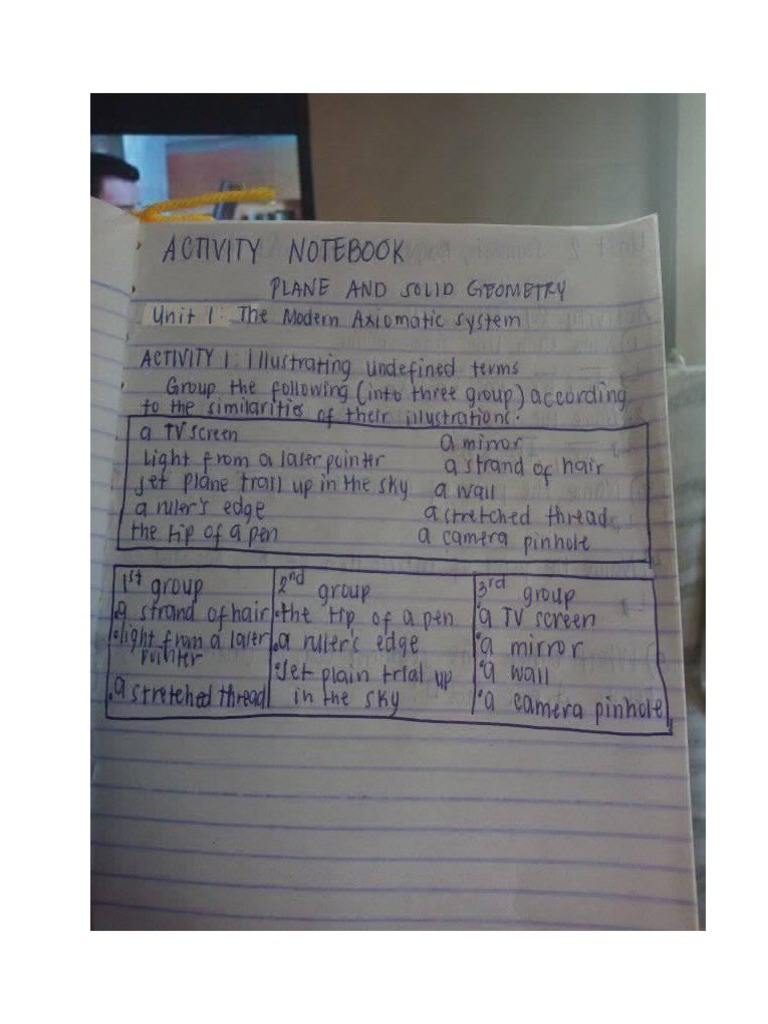 ACTIVITY NOTEBOOK
PLANE AND SOLID GEOMETRY
Unit 1: The Modern Axiomatic system
ACTIVITY 1: Illustrating undefined terms
Group the following (into three group) according
to the similarities of their illustrations.
a TV screen
Light from a laser pointer
Jet plane trail up in the sky
a ruler's edge
the tip of a pen
a mirror
a strand of hair
a wall
a stretched thread
a camera pinhole
1st group
a strand of hair
light from a laser
pointer
a stretched thread
2nd group
the tip of a pen
a ruler's edge
Jet plain trial up
in the sky
3rd group
a TV screen
a mirror
a wall
a camera pinhole